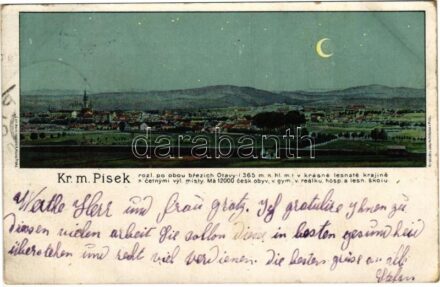 darabanth
Kr. m. Pisek
rozl. po obou březích Otavy
365 m. n. hl. m. v krásné lesnaté krajině
s četnými výl. místy. Má 12000 česk. obyv., v. gym., v. reálku, hosp. a lesn. školu
Werthe Herr und Frau gratz. Ich gratulire Ihnen zu
diesen vielen arbeit Sie sollen diese in besten gesundheit
überstehen und recht viel verdienen. die besten grüse an alle